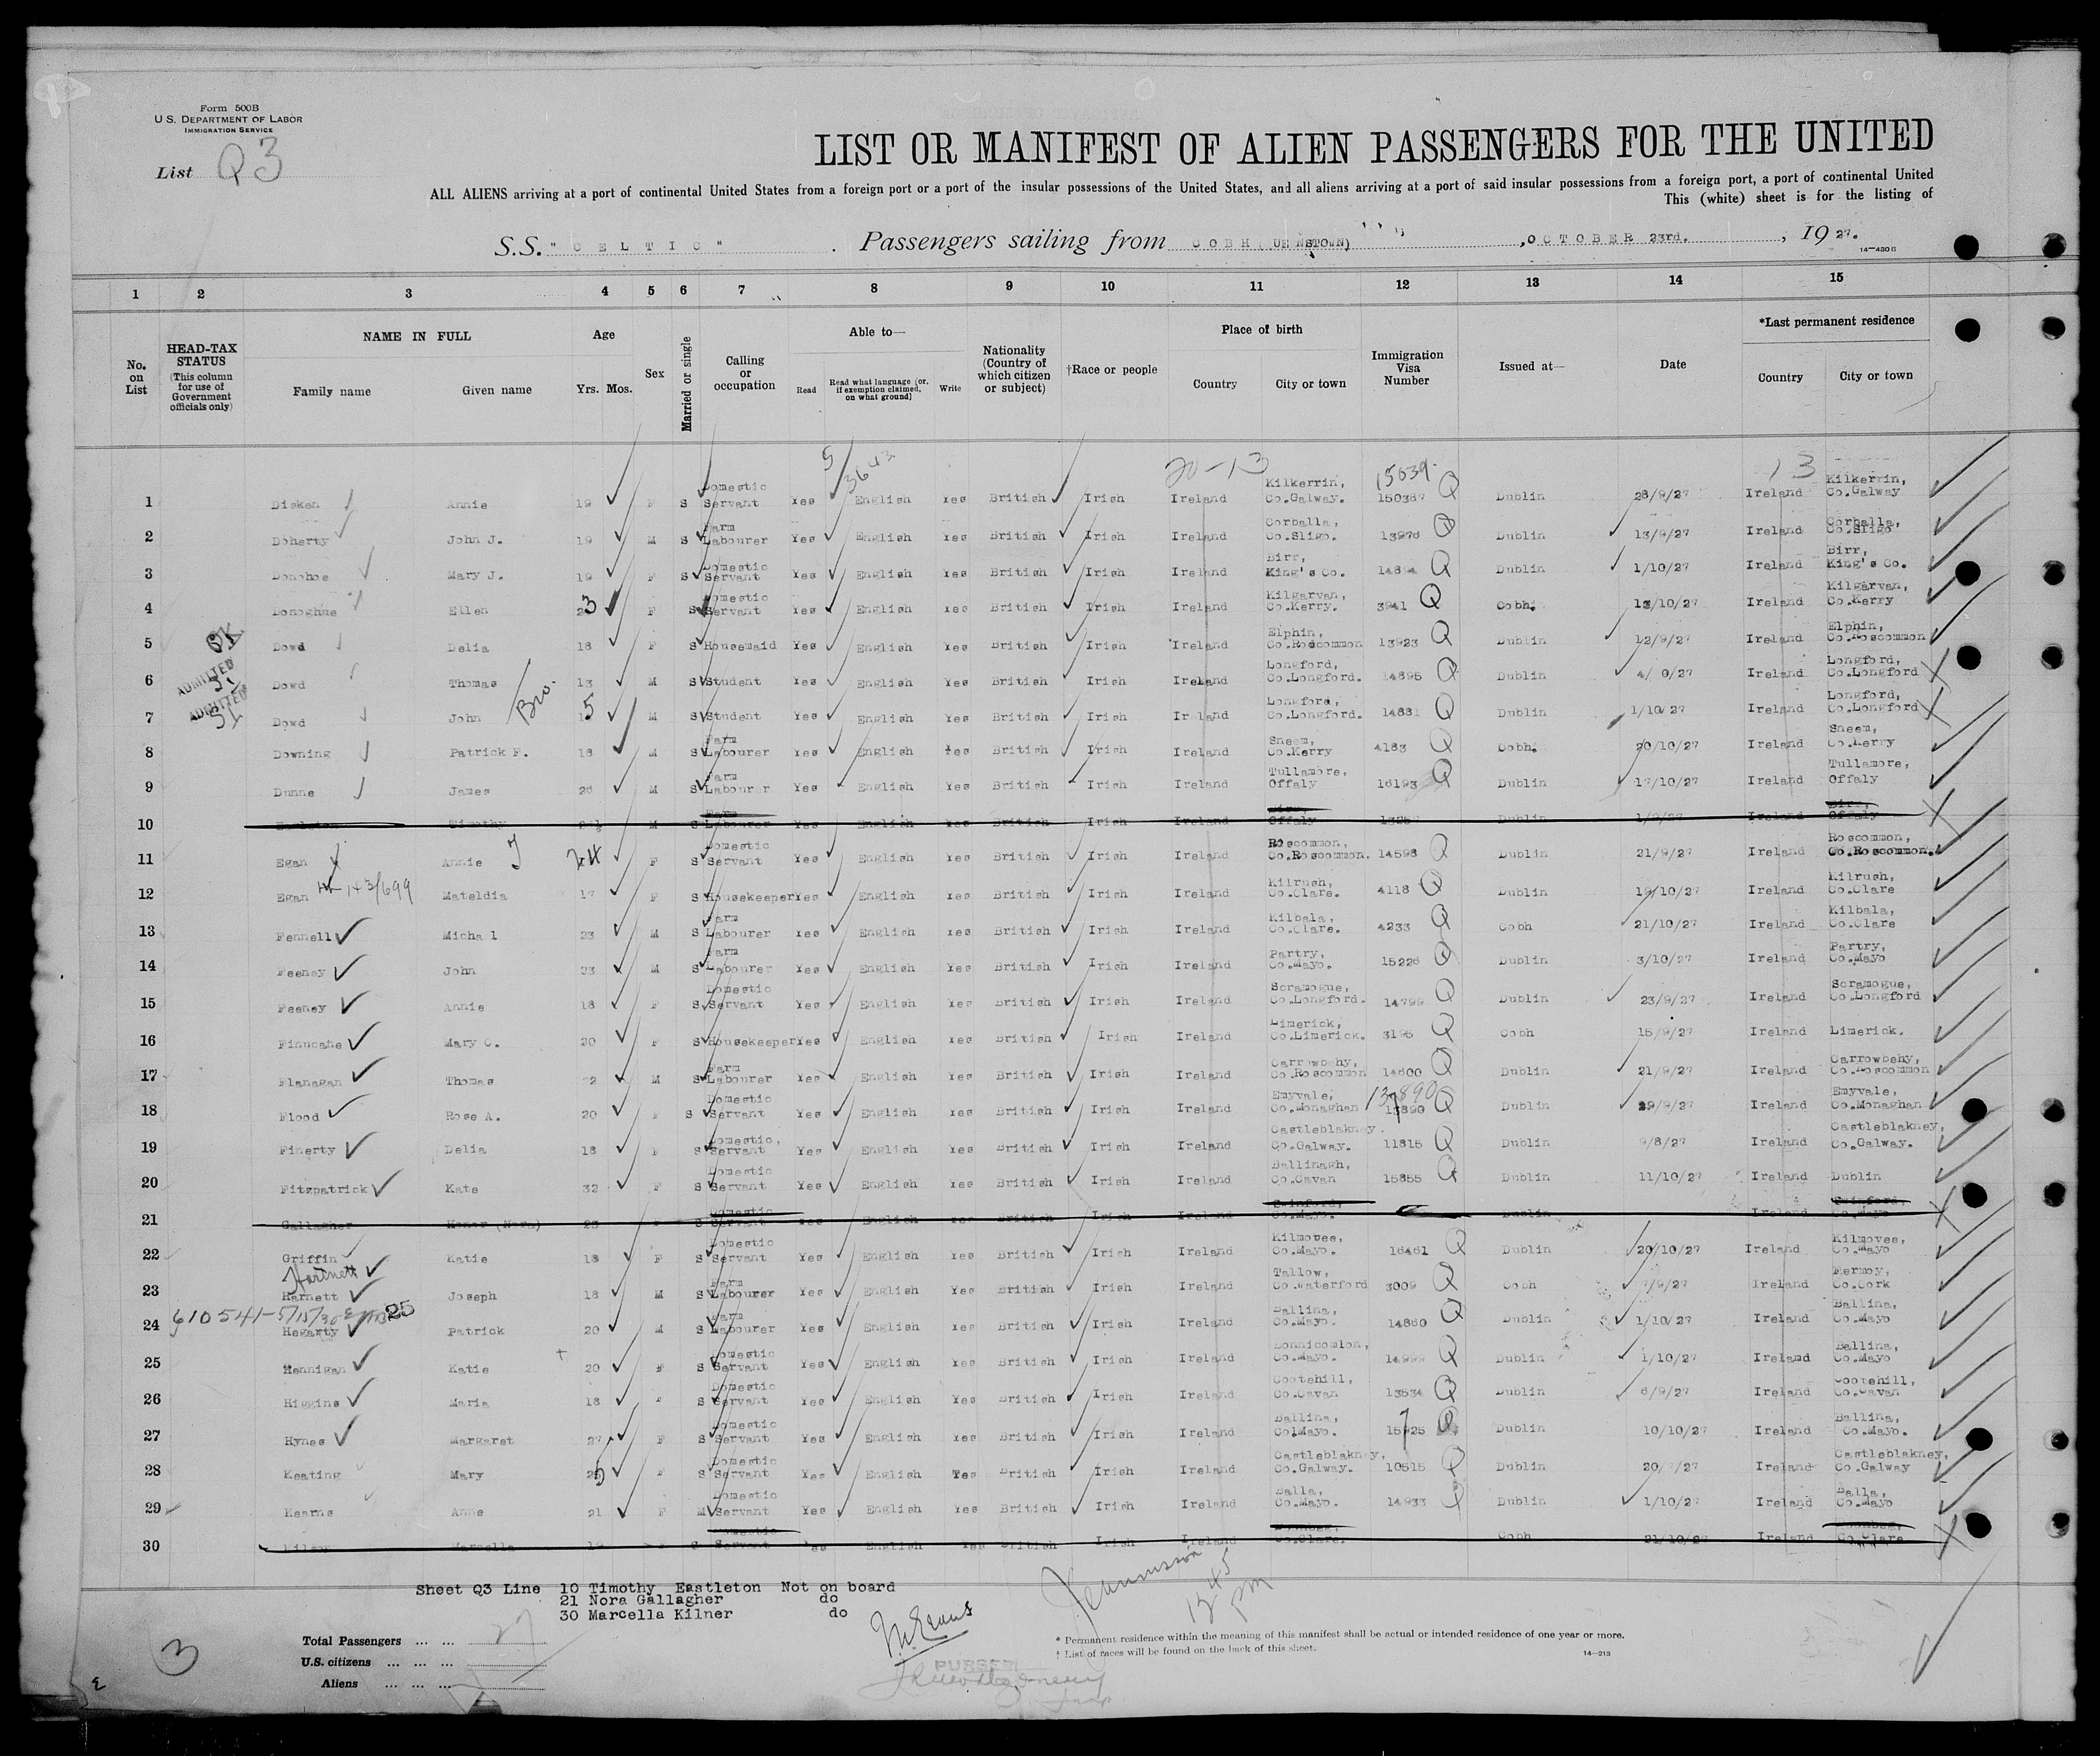 Form 500B
U.S. DEPARTMENT OF LABOR
IMMIGRATION SERVICE
List Q3
LIST OR MANIFEST OF ALIEN PASSENGERS FOR THE UNITED
ALL ALIENS arriving at a port of continental United States from a foreign port or a port of the insular possessions of the United States, and all aliens arriving at a port of said insular possessions from a foreign port, a port of continental United
This (white) sheet is for the listing of
S.S. "CELTIC". Passengers sailing from COBH, OCTOBER 23rd., 1927.
14-480 B
1 2 3 4 5 6 7 8 9 10 11 12 13 14 15
No. on List
HEAD-TAX STATUS (This column for use of Government officials only)
NAME IN FULL Family name Given name
Age Yrs. Mos.
Sex
Married or single
Calling or occupation
Able to— Read Read what language (or, if exemption claimed, on what ground) Write
Nationality (Country of which citizen or subject)
†Race or people
Place of birth Country City or town
Immigration Visa Number
Issued at—
Date
*Last permanent residence Country City or town
20-13 13
1 Annie 19 F S Domestic Servant Yes English Yes British Irish Ireland Kilkerrin, Co.Galway. Q Dublin 28/9/27 Ireland Kilkerrin, Co.Galway
2 Doherty John J. 19 M S Farm Labourer Yes English Yes British Irish Ireland Corballa, Co.Sligo. 13976 Q Dublin 13/9/27 Ireland Corballa, Co.Sligo
3 Donohoe Mary J. 19 F S Domestic Servant Yes English Yes British Irish Ireland Birr, King's Co. Q Dublin 1/10/27 Ireland Birr, King's Co.
4 Donoghue Ellen 23 F S Domestic Servant Yes English Yes British Irish Ireland Kilgarvan, Co.Kerry. 3941 Q Cobh. 13/10/27 Ireland Kilgarvan, Co.Kerry
5 Dowd Delia 18 F S Housemaid Yes English Yes British Irish Ireland Elphin, Co.Roscommon 13923 Q Dublin 12/9/27 Ireland Elphin, Co.Roscommon
ADMITTED
6 Dowd Thomas 13 M S Student Yes English Yes British Irish Ireland Longford, Co.Longford. 14895 Q Dublin Ireland Longford, Co.Longford
ADMITTED
7 Dowd John Bro. 15 M S Student Yes English Yes British Irish Ireland Longford, Co.Longford. 14881 Q Dublin 1/10/27 Ireland Longford, Co.Longford
8 Downing Patrick F. 18 M S Farm Labourer Yes English Yes British Irish Ireland Sneem, Co.Kerry 4183 Q Cobh. 20/10/27 Ireland Sneem, Co.Kerry
9 Dunne James 26 M S Farm Labourer Yes English Yes British Irish Ireland Tullamore, Offaly 16193 Q Dublin 17/10/27 Ireland Tullamore, Offaly
10 Timothy M S Farm Labourer Yes English Yes British Irish Ireland Birr, Offaly Dublin Ireland Birr, Offaly
11 Egan Annie 24 F S Domestic Servant Yes English Yes British Irish Ireland Roscommon, Co.Roscommon. 14598 Q Dublin 21/9/27 Ireland Roscommon, Co.Roscommon.
12 Egan Mateldia 17 F S Housekeeper Yes English Yes British Irish Ireland Kilrush, Co.Clare. 4118 Q Dublin 19/10/27 Ireland Kilrush, Co.Clare
13 Fennell Michael 23 M S Farm Labourer Yes English Yes British Irish Ireland Kilbala, Co.Clare. 4233 Q Cobh 21/10/27 Ireland Kilbala, Co.Clare
14 Feeney John 23 M S Farm Labourer Yes English Yes British Irish Ireland Partry, Co.Mayo. 15226 Q Dublin 3/10/27 Ireland Partry, Co.Mayo
15 Feeney Annie 18 F S Domestic Servant Yes English Yes British Irish Ireland Scramogue, Co.Longford. 14799 Q Dublin 23/9/27 Ireland Scramogue, Co.Longford
16 Finucane Mary C. 20 F S Housekeeper Yes English Yes British Irish Ireland Limerick, Co.Limerick. 3195 Q Cobh 15/9/27 Ireland Limerick.
17 Flanagan Thomas 22 M S Farm Labourer Yes English Yes British Irish Ireland Carrowbehy, Co.Roscommon 14600 Q Dublin 21/9/27 Ireland Carrowbehy, Co.Roscommon
18 Flood Rose A. 20 F S Domestic Servant Yes English Yes British Irish Ireland Emyvale, Co.Monaghan 13890 Q Dublin 29/9/27 Ireland Emyvale, Co.Monaghan
19 Finerty Delia 18 F S Domestic, Servant Yes English Yes British Irish Ireland Castleblakney. Co.Galway. 11815 Q Dublin 9/8/27 Ireland Castleblakney, Co.Galway.
20 Fitzpatrick Kate 32 F S Domestic Servant Yes English Yes British Irish Ireland Ballinagh, Co.Cavan 15855 Q Dublin 11/10/27 Ireland Dublin
21 Gallagher Honor (Nora) 23 S Domestic Servant Yes English Yes British Irish Ireland Co.Mayo. Dublin Ireland Co.Mayo
22 Griffin Katie 18 F S Domestic Servant Yes English Yes British Irish Ireland Kilmovee, Co.Mayo. 16461 Q Dublin 20/10/27 Ireland Kilmovee, Co.Mayo
Hartnett
23 Harnett Joseph 18 M S Farm Labourer Yes English Yes British Irish Ireland Tallow, Co.Waterford 3009 Q Cobh 7/9/27 Ireland Fermoy, Co.Cork
24 Hegarty Patrick 20 M S Farm Labourer Yes English Yes British Irish Ireland Ballina, Co.Mayo. 14860 Q Dublin 1/10/27 Ireland Ballina, Co.Mayo
25 Hennigan Katie 20 F S Domestic Servant Yes English Yes British Irish Ireland Bonnicomlon, Co.Mayo. Q Dublin 1/10/27 Ireland Ballina, Co.Mayo
26 Higgins Maria 18 F S Domestic Servant Yes English Yes British Irish Ireland Cootehill, Co.Cavan 13534 Q Dublin 6/9/27 Ireland Cootehill, Co.Cavan
27 Hynes Margaret 27 F S Domestic Servant Yes English Yes British Irish Ireland Ballina, Co.Mayo. 15725 Q Dublin 10/10/27 Ireland Ballina, Co.Mayo.
28 Keating Mary 25 F S Domestic Servant Yes English Yes British Irish Ireland Castleblakney, Co.Galway. 10515 Q Dublin 20/7/27 Ireland Castleblakney, Co.Galway
29 Kearns Anne 21 F M Domestic Servant Yes English Yes British Irish Ireland Balla, Co.Mayo. 14933 Q Dublin 1/10/27 Ireland Balla, Co.Mayo
30 Marcella S Domestic Servant Yes English Yes British Irish Ireland Co.Clare. Cobh 21/10/27 Ireland Co.Clare
Sheet Q3 Line 10 Timothy Eastleton Not on board
21 Nora Gallagher do
30 Marcella Kilner do
3
Total Passengers 27
U.S. citizens
Aliens
M. Evans
PURSER
12 45 pm
* Permanent residence within the meaning of this manifest shall be actual or intended residence of one year or more.
† List of races will be found on the back of this sheet.
14-213